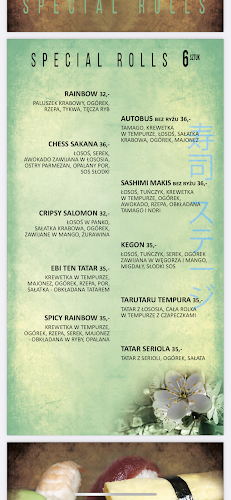 SPECIAL ROLLS
SPECIAL ROLLS 6 SZTUK
RAINBOW 32,-
PALUSZEK KRABOWY, OGÓREK,
RZEPA, TYKWA, TĘCZA RYB
CHESS SAKANA 36,-
ŁOSOŚ, SEREK,
AWOKADO ZAWIJANA W ŁOSOSIA,
OSTRY PARMEZAN, OPALANY POR,
SOS SŁODKI
CRIPSY SALOMON 32,-
ŁOSOŚ W PANKO,
SAŁATKA KRABOWA, OGÓREK,
ZAWIJANE W MANGO, ŻURAWINA
EBI TEN TATAR 35,-
KREWETKA W TEMPURZE,
MAJONEZ, OGÓREK, RZEPA, POR,
SAŁATKA - OBKŁADANA TATAREM
SPICY RAINBOW 35,-
KREWETKA W TEMPURZE,
OGÓREK, RZEPA, SEREK, MAJONEZ
- OBKŁADANA W RYBY, OPALANA
AUTOBUS BEZ RYŻU 36,-
TAMAGO, KREWETKA
W TEMPURZE, ŁOSOŚ, SAŁATKA
KRABOWA, OGÓREK, MAJONEZ
SASHIMI MAKIS BEZ RYŻU 36,-
ŁOSOŚ, TUŃCZYK, KREWETKA
W TEMPURZE, OGÓREK,
AWOKADO, RZEPA, OBKŁADANA
TAMAGO I NORI
KEGON 35,-
ŁOSOŚ, TUŃCZYK, SEREK, OGÓREK
ZAWIJANA W WĘGORZA I MANGO,
MIGDAŁY, SŁODKI SOS
TARUTARU TEMPURA 35,-
TATAR Z ŁOSOSIA, CAŁA ROLKA
W TEMPURZE Z CZAPECZKAMI
TATAR SERIOLA 35,-
TATAR Z SERIOLI, OGÓREK, SAŁATA
寿司 ステージ